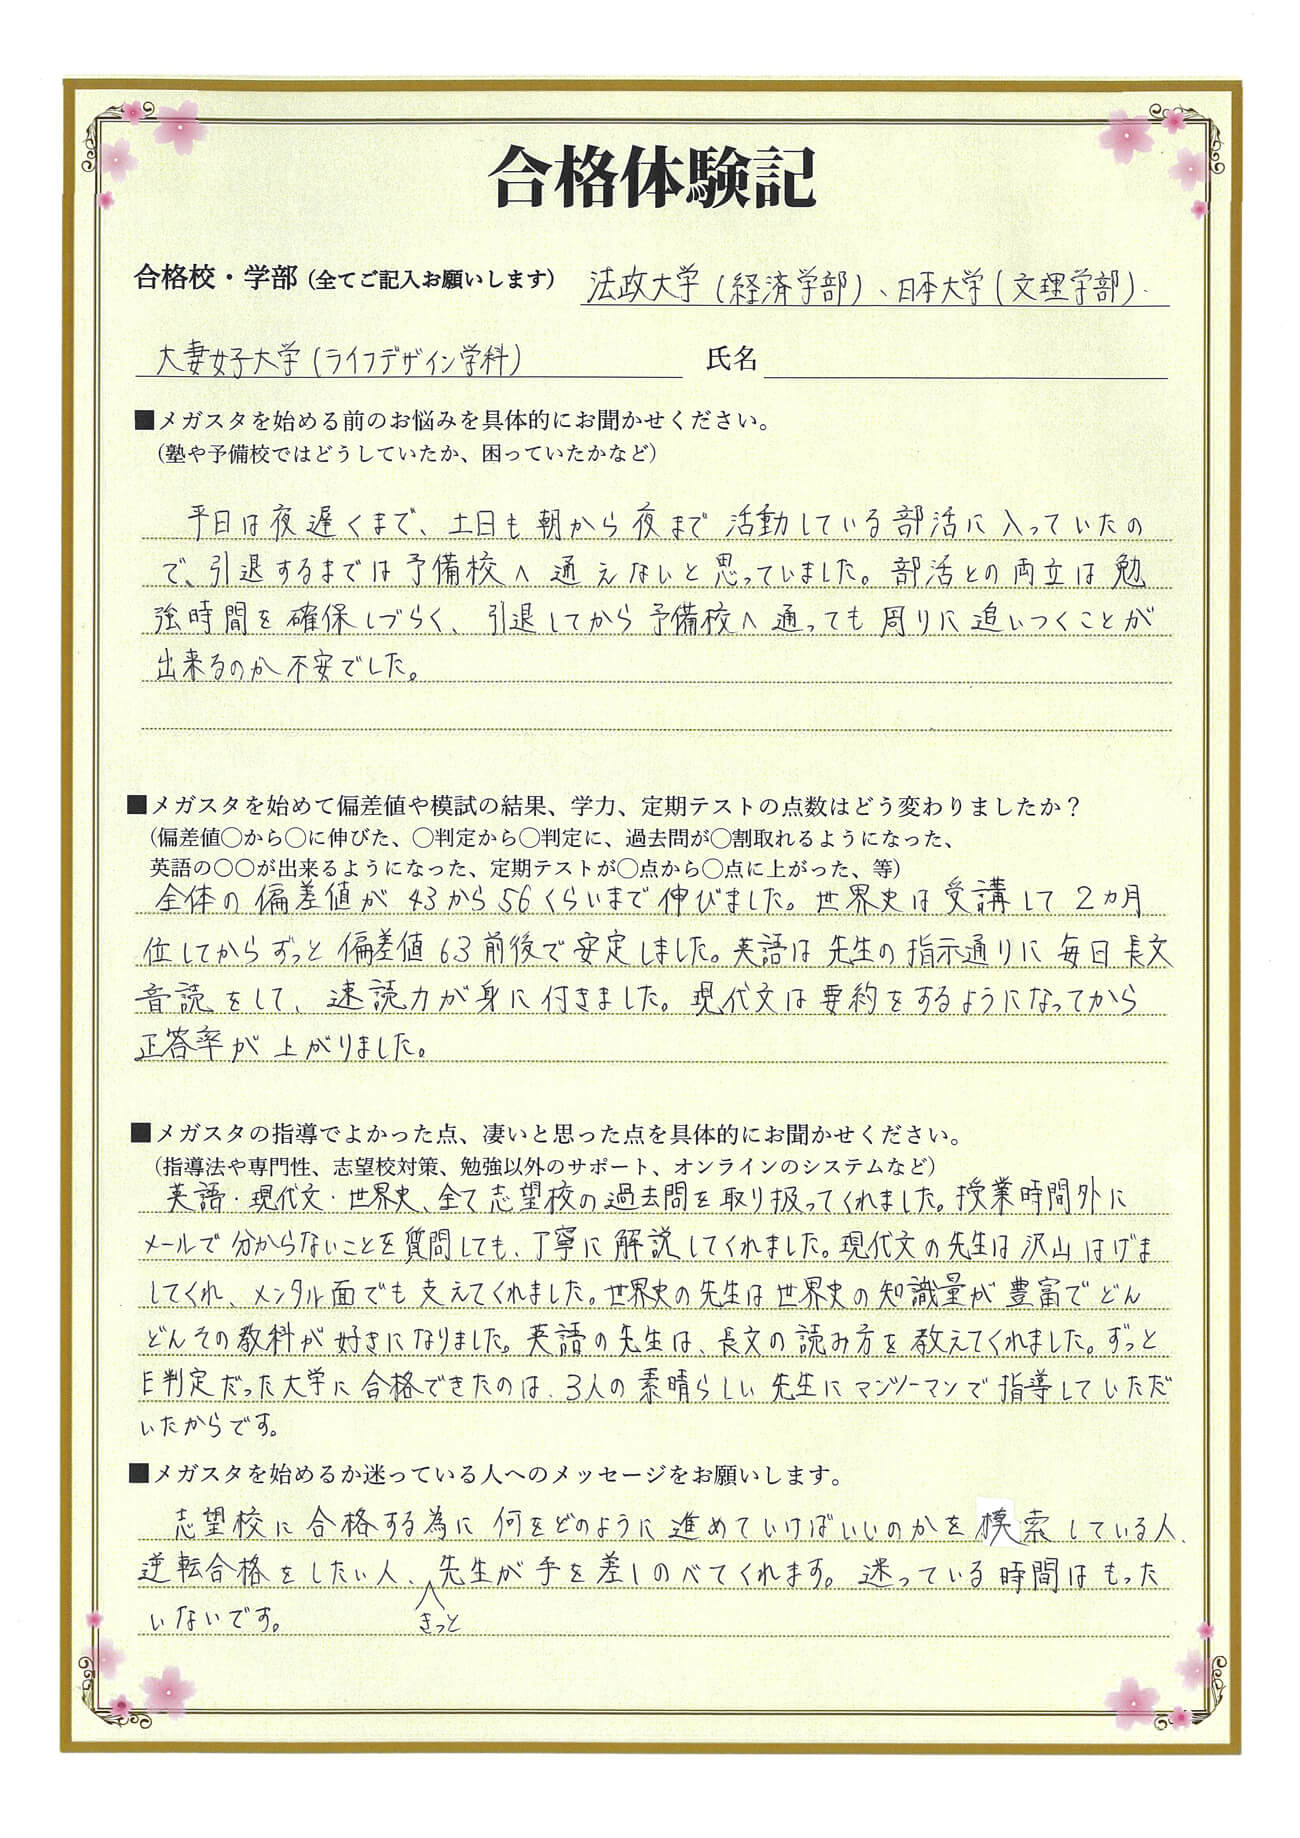 合格体験記
合格校・学部（全てご記入お願いします） 法政大学（経済学部）、日本大学（文理学部）、
大妻女子大学（ライフデザイン学科） 氏名
■メガスタを始める前のお悩みを具体的にお聞かせください。
（塾や予備校ではどうしていたか、困っていたかなど）
平日は夜遅くまで、土日も朝から夜まで活動している部活に入っていたの
で、引退するまでは予備校へ通えないと思っていました。部活との両立は勉
強時間を確保しづらく、引退してから予備校へ通っても周りに追いつくことが
出来るのか不安でした。
■メガスタを始めて偏差値や模試の結果、学力、定期テストの点数はどう変わりましたか？
（偏差値〇から〇に伸びた、〇判定から〇判定に、過去問が〇割取れるようになった、
英語の〇〇が出来るようになった、定期テストが〇点から〇点に上がった、等）
全体の偏差値が43から56くらいまで伸びました。世界史は受講して2カ月
位してからずっと偏差値63前後で安定しました。英語は先生の指示通りに毎日長文
音読をして、速読力が身に付きました。現代文は要約をするようになってから
正答率が上がりました。
■メガスタの指導でよかった点、凄いと思った点を具体的にお聞かせください。
（指導法や専門性、志望校対策、勉強以外のサポート、オンラインのシステムなど）
英語・現代文・世界史、全て志望校の過去問を取り扱ってくれました。授業時間外に
メールで分からないことを質問しても、丁寧に解説してくれました。現代文の先生は沢山はげま
してくれ、メンタル面でも支えてくれました。世界史の先生は世界史の知識量が豊富でどん
どんその教科が好きになりました。英語の先生は、長文の読み方を教えてくれました。ずっと
E判定だった大学に合格できたのは、3人の素晴らしい先生にマンツーマンで指導していただ
いたからです。
■メガスタを始めるか迷っている人へのメッセージをお願いします。
志望校に合格する為に何をどのように進めていけばいいのかを模索している人、
逆転合格をしたい人、先生が手を差しのべてくれます。迷っている時間はもった
いないです。 きっと